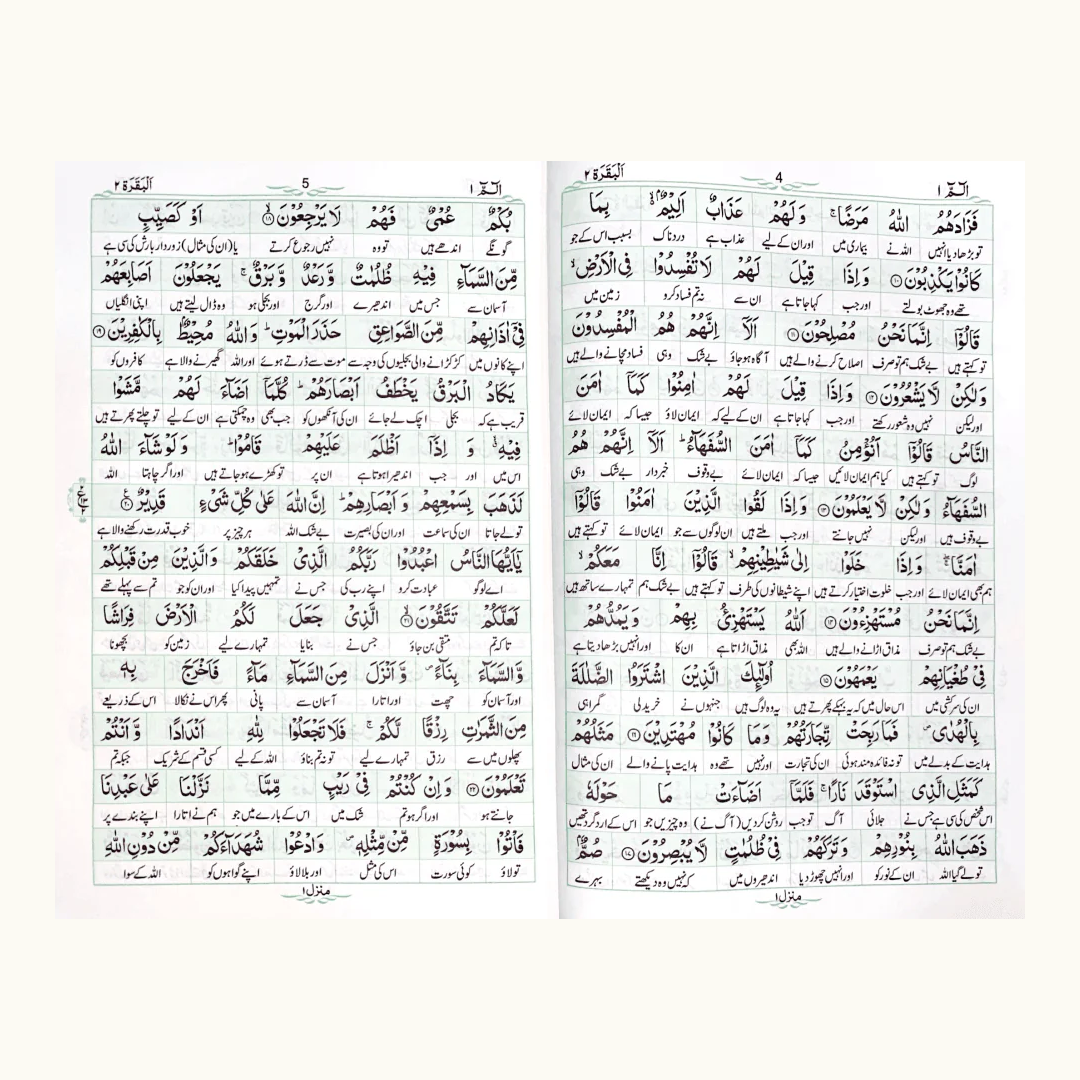 الٓمّٓ ١
4
اَلْبَقَرَة ٢
فَزَادَهُمُ اللّٰهُ مَرَضًا ۚ وَلَهُمْ عَذَابٌ اَلِيْمٌۢ ۙ۬ بِمَا
تو بڑھا دیا انہیں اللہ نے بیماری میں اور ان کے لیے عذاب ہے دردناک بسبب اس کے جو
كَانُوْا يَكْذِبُوْنَ ۝١٠ وَاِذَا قِيْلَ لَهُمْ لَا تُفْسِدُوْا فِى الْاَرْضِ ۙ
تھے وہ جھوٹ بولتے اور جب کہا جاتا ہے ان سے نہ تم فساد کرو زمین میں
قَالُوْٓا اِنَّمَا نَحْنُ مُصْلِحُوْنَ ۝١١ اَلَآ اِنَّهُمْ هُمُ الْمُفْسِدُوْنَ
تو کہتے ہیں بے شک ہم تو صرف اصلاح کرنے والے ہیں آگاہ ہو جاؤ بے شک وہی فساد مچانے والے ہیں
وَلٰكِنْ لَّا يَشْعُرُوْنَ ۝١٢ وَاِذَا قِيْلَ لَهُمْ اٰمِنُوْا كَمَآ اٰمَنَ
اور لیکن نہیں وہ شعور رکھتے اور جب کہا جاتا ہے ان کے لیے کہ ایمان لاؤ جیسا کہ ایمان لائے
النَّاسُ قَالُوْٓا اَنُؤْمِنُ كَمَآ اٰمَنَ السُّفَهَآءُ ؕ اَلَآ اِنَّهُمْ هُمُ
لوگ تو کہتے ہیں کیا ہم ایمان لائیں جیسا کہ ایمان لائے بے وقوف خبردار بے شک وہی
السُّفَهَآءُ وَلٰكِنْ لَّا يَعْلَمُوْنَ ۝١٣ وَاِذَا لَقُوا الَّذِيْنَ اٰمَنُوْا قَالُوْٓا
بے وقوف ہیں اور لیکن نہیں جانتے اور جب ملتے ہیں ان لوگوں سے جو ایمان لائے تو کہتے ہیں
اٰمَنَّا ۖۚ وَاِذَا خَلَوْا اِلٰى شَيٰطِيْنِهِمْ ۙ قَالُوْٓا اِنَّا مَعَكُمْ ۙ
ہم بھی ایمان لائے اور جب خلوت اختیار کرتے ہیں اپنے شیطانوں کی طرف تو کہتے ہیں بے شک ہم تمہارے ساتھ ہیں
اِنَّمَا نَحْنُ مُسْتَهْزِءُوْنَ ۝١٤ اَللّٰهُ يَسْتَهْزِئُ بِهِمْ وَيَمُدُّهُمْ
بے شک ہم تو صرف مذاق اڑانے والے ہیں اللہ بھی مذاق اڑاتا ہے ان کا اور انہیں بڑھا دیتا ہے
فِىْ طُغْيَانِهِمْ يَعْمَهُوْنَ ۝١٥ اُولٰٓئِكَ الَّذِيْنَ اشْتَرَوُا الضَّلٰلَةَ
ان کی سرکشی میں اس حال میں کہ یہ بہکے پھرتے ہیں یہ وہ لوگ ہیں جنہوں نے خرید لی گمراہی
بِالْهُدٰى ۪ فَمَا رَبِحَتْ تِّجَارَتُهُمْ وَمَا كَانُوْا مُهْتَدِيْنَ ۝١٦ مَثَلُهُمْ
ہدایت کے بدلے میں تو نہ فائدہ مند ہوئی ان کی تجارت اور نہیں تھے وہ ہدایت پانے والے ان کی مثال
كَمَثَلِ الَّذِى اسْتَوْقَدَ نَارًا ۚ فَلَمَّآ اَضَآءَتْ مَا حَوْلَهٗ
اس شخص کی سی ہے جس نے جلائی آگ تو جب روشن کر دیں (آگ نے) وہ چیزیں جو اس کے ارد گرد تھیں
ذَهَبَ اللّٰهُ بِنُوْرِهِمْ وَتَرَكَهُمْ فِىْ ظُلُمٰتٍ لَّا يُبْصِرُوْنَ ۝١٧ صُمٌّۢ
تو لے گیا اللہ ان کے نور کو اور انہیں چھوڑ دیا اندھیروں میں کہ نہیں وہ دیکھتے بہرے
منزل ١
الٓمّٓ ١
5
اَلْبَقَرَة ٢
بُكْمٌ عُمْىٌ فَهُمْ لَا يَرْجِعُوْنَ ۝١٨ اَوْ كَصَيِّبٍ
گونگے اندھے ہیں تو وہ نہیں رجوع کرتے یا (ان کی مثال) زوردار بارش کی سی ہے
مِّنَ السَّمَآءِ فِيْهِ ظُلُمٰتٌ وَّرَعْدٌ وَّبَرْقٌ ۚ يَجْعَلُوْنَ اَصَابِعَهُمْ
آسمان سے جس میں اندھیرے اور گرج اور بجلی ہو وہ ڈال لیتے ہیں اپنی انگلیاں
فِىْٓ اٰذَانِهِمْ مِّنَ الصَّوَاعِقِ حَذَرَ الْمَوْتِ ؕ وَاللّٰهُ مُحِيْطٌۢ بِالْكٰفِرِيْنَ ۝١٩
اپنے کانوں میں کڑکڑانے والی بجلیوں کی وجہ سے موت سے ڈرتے ہوئے اور اللہ گھیرنے والا ہے کافروں کو
يَكَادُ الْبَرْقُ يَخْطَفُ اَبْصَارَهُمْ ؕ كُلَّمَآ اَضَآءَ لَهُمْ مَّشَوْا
قریب ہے کہ بجلی اچک لے جائے ان کی آنکھوں کو جب بھی وہ چمکتی ہے ان کے لیے تو چلتے پھرتے ہیں
فِيْهِ ۙ وَ اِذَآ اَظْلَمَ عَلَيْهِمْ قَامُوْا ؕ وَلَوْ شَآءَ اللّٰهُ
اس میں اور جب اندھیرا ہوتا ہے ان پر تو کھڑے ہو جاتے ہیں اور اگر چاہتا اللہ
لَذَهَبَ بِسَمْعِهِمْ وَاَبْصَارِهِمْ ؕ اِنَّ اللّٰهَ عَلٰى كُلِّ شَىْءٍ قَدِيْرٌ ۝٢٠
تو لے جاتا ان کی سماعت اور ان کی بصیرت بے شک اللہ ہر چیز پر خوب قدرت رکھنے والا ہے
يٰٓاَيُّهَا النَّاسُ اعْبُدُوْا رَبَّكُمُ الَّذِىْ خَلَقَكُمْ وَالَّذِيْنَ مِنْ قَبْلِكُمْ
اے لوگو عبادت کرو اپنے رب کی جس نے تمہیں پیدا کیا اور ان کو جو تم سے پہلے تھے
لَعَلَّكُمْ تَتَّقُوْنَ ۝٢١ الَّذِىْ جَعَلَ لَكُمُ الْاَرْضَ فِرَاشًا
تاکہ تم متقی بن جاؤ جس نے بنایا تمہارے لیے زمین کو بچھونا
وَّالسَّمَآءَ بِنَآءً ۪ وَّاَنْزَلَ مِنَ السَّمَآءِ مَآءً فَاَخْرَجَ بِهٖ
اور آسمان کو چھت اور اتارا آسمان سے پانی پھر اس نے نکالا اس کے ذریعے
مِنَ الثَّمَرٰتِ رِزْقًا لَّكُمْ ۚ فَلَا تَجْعَلُوْا لِلّٰهِ اَنْدَادًا وَّاَنْتُمْ
پھلوں میں سے رزق تمہارے لیے تو نہ تم بناؤ اللہ کے لیے کسی قسم کے شریک جبکہ تم
تَعْلَمُوْنَ ۝٢٢ وَاِنْ كُنْتُمْ فِىْ رَيْبٍ مِّمَّا نَزَّلْنَا عَلٰى عَبْدِنَا
جانتے ہو اور اگر ہو تم شک میں اس کے بارے میں جو ہم نے اتارا اپنے بندے پر
فَاْتُوْا بِسُوْرَةٍ مِّنْ مِّثْلِهٖ ۪ وَادْعُوْا شُهَدَآءَكُمْ مِّنْ دُوْنِ اللّٰهِ
تو لاؤ کوئی سورت اس کی مثل اور بلا لاؤ اپنے گواہوں کو اللہ کے سوا
منزل ١